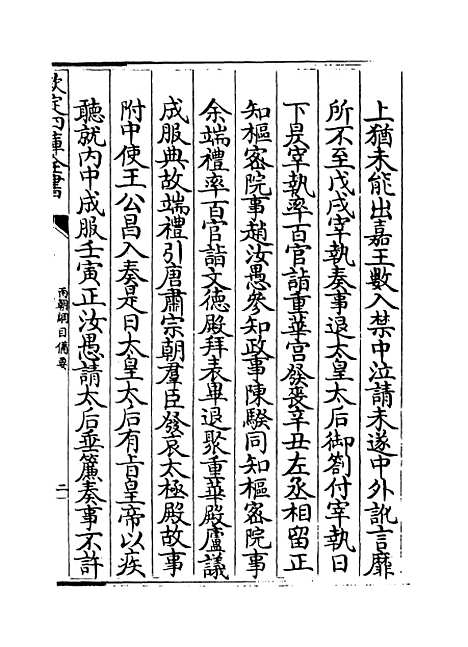 上猶未能出嘉王數入禁中泣請未遂中外訛言靡
所不至戊戌宰執奏事退太皇太后御劄付宰執日
下晁宰執率百官詣重華宮發喪辛丑左丞相留正
知樞密院事趙汝愚參知政事陳騤同知樞密院事
余端禮率百官詣文德殿拜表畢退聚重華殿廬議
成服典故端禮引唐肅宗朝羣臣發哀太極殿故事
附中使王公昌入奏是日太皇太后有㫖皇帝以疾
聽就内中成服壬寅正汝愚請太后垂簾奏事不許
欽定四庫全書
兩朝綱目備要
二